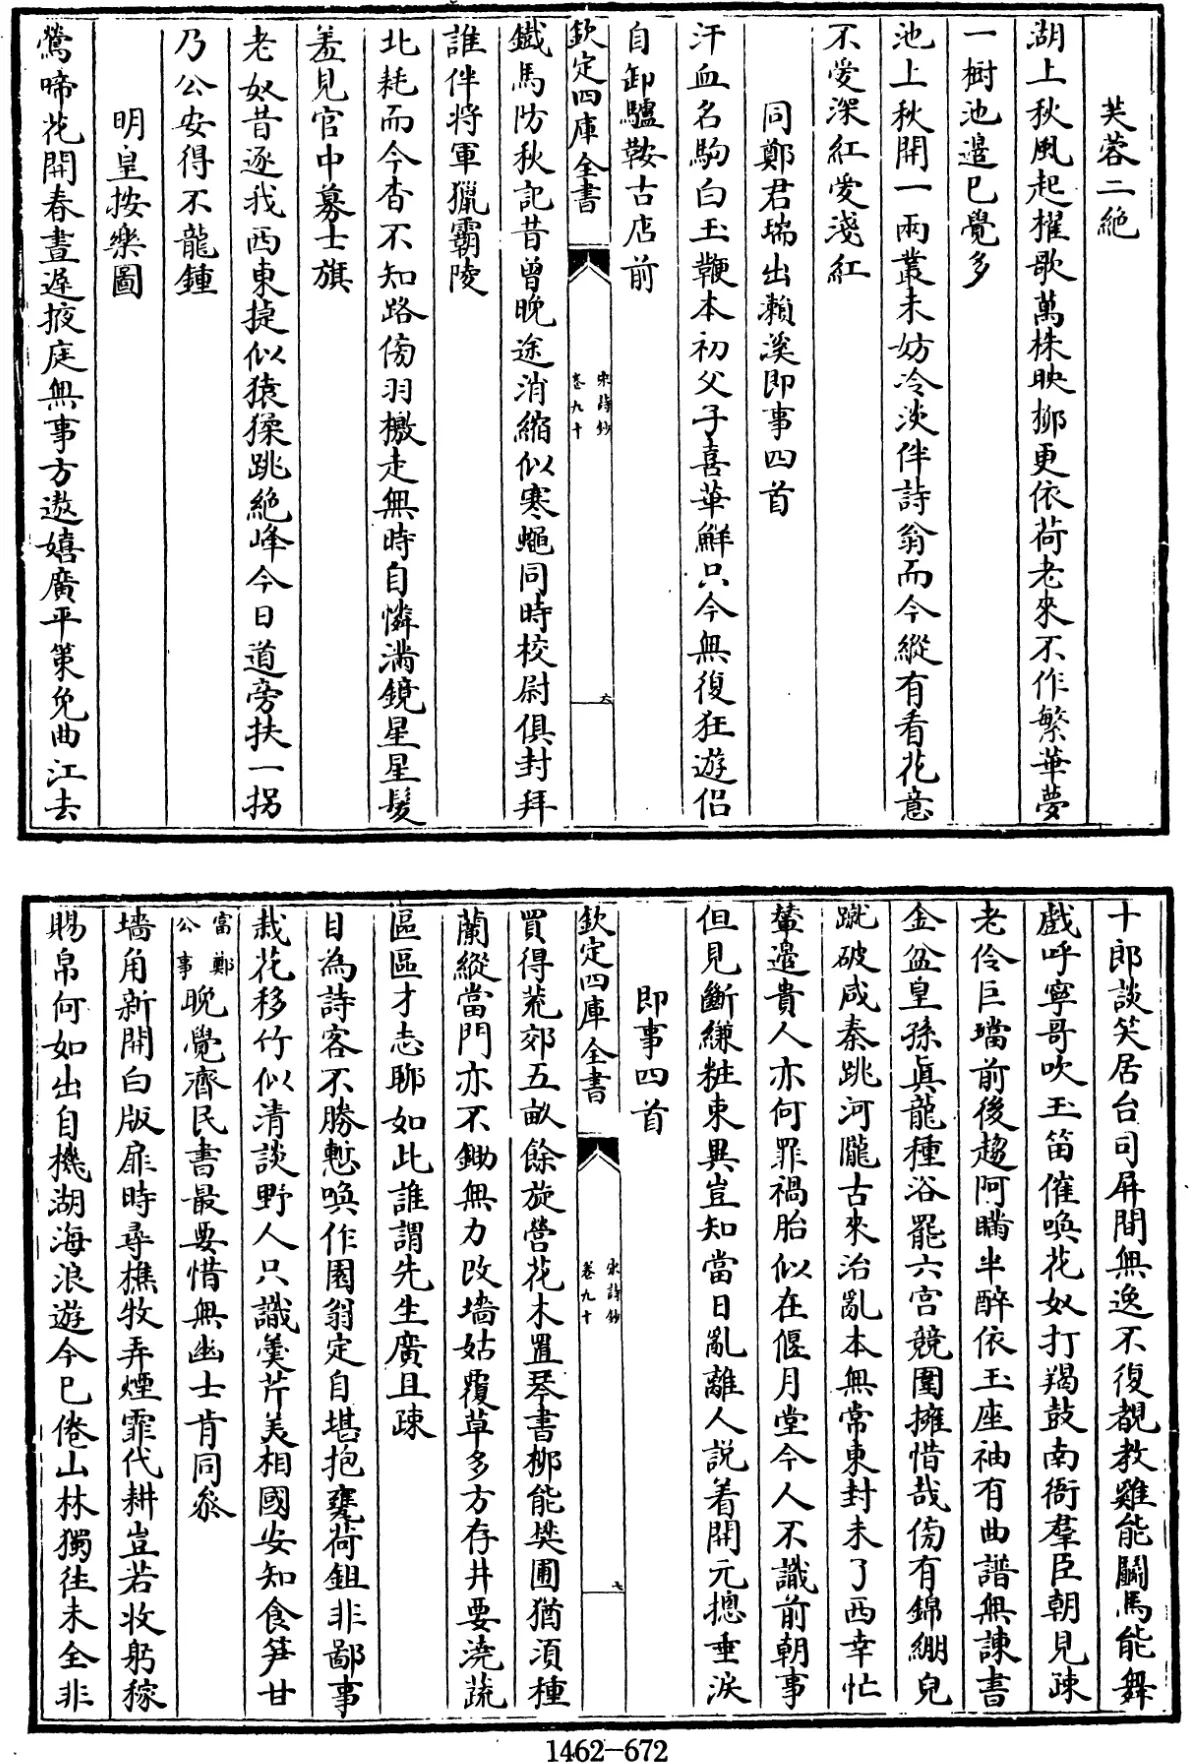 芙蓉二絶
湖上秋風起櫂歌萬株映栁更依荷老來不作繁華夢
一樹池邉已覺多
池上秋開一兩叢未妨冷淡伴詩翁而今縱有看花意
不愛深紅愛淺紅
同鄭君瑞出瀬溪即事四首
汗血名駒白玉鞭本初父子喜華鮮只今無復狂遊侣
自卸驢鞍古店前
欽定四庫全書
宋詩鈔
卷九十
六
鐵馬防秋記昔曽晚途消縮似寒蠅同時校尉俱封拜
誰伴將軍獵霸陵
北耗而今杳不知路傍羽檄走無時自憐滿鏡星星髮
羞見官中募士旗
老奴昔逐我西東捷似猿猱跳絶峰今日道旁扶一拐
乃公安得不龍鍾
明皇按樂圖
鶯啼花開春晝遲掖庭無事方遨嬉廣平策免曲江去
十郎談笑居台司屏間無逸不復覩教雞能鬭馬能舞
戲呼寧哥吹玉笛催喚花奴打羯鼓南衙羣臣朝見疎
老伶巨璫前後趨阿瞞半醉依玉座袖有曲譜無諫書
金盆皇孫眞龍種浴罷六宫競圍擁惜哉傍有錦綳兒
蹴破咸秦跳河隴古來治亂本無常東封未了西幸忙
輦邉貴人亦何罪禍胎似在偃月堂今人不識前朝事
但見斷縑粧束異豈知當日亂離人説着開元揔垂淚
即事四首
欽定四庫全書
宋詩鈔
卷九十
七
買得荒郊五畝餘旋營花木置琴書栁能樊圃猶湏種
蘭縱當門亦不鋤無力改墻姑覆草多方存井要澆蔬
區區才志聊如此誰謂先生廣且疎
目為詩客不勝慙喚作園翁定自堪抱甕荷鉏非鄙事
栽花移竹似清談野人只識羮芹美相國安知食笋甘
富鄭公事晩覺齊民書最要惜無幽士肯同叅
墻角新開白版扉時尋樵牧弄煙霏代耕豈若收躬稼
賜帛何如出自機湖海浪遊今已倦山林獨徃未全非
1462—672